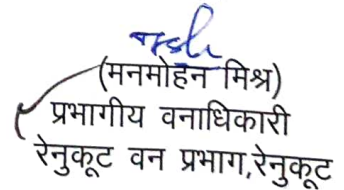 (मनमोहन मिश्र)
प्रभागीय वनाधिकारी
रेनुकूट वन प्रभाग,रेनुकूट